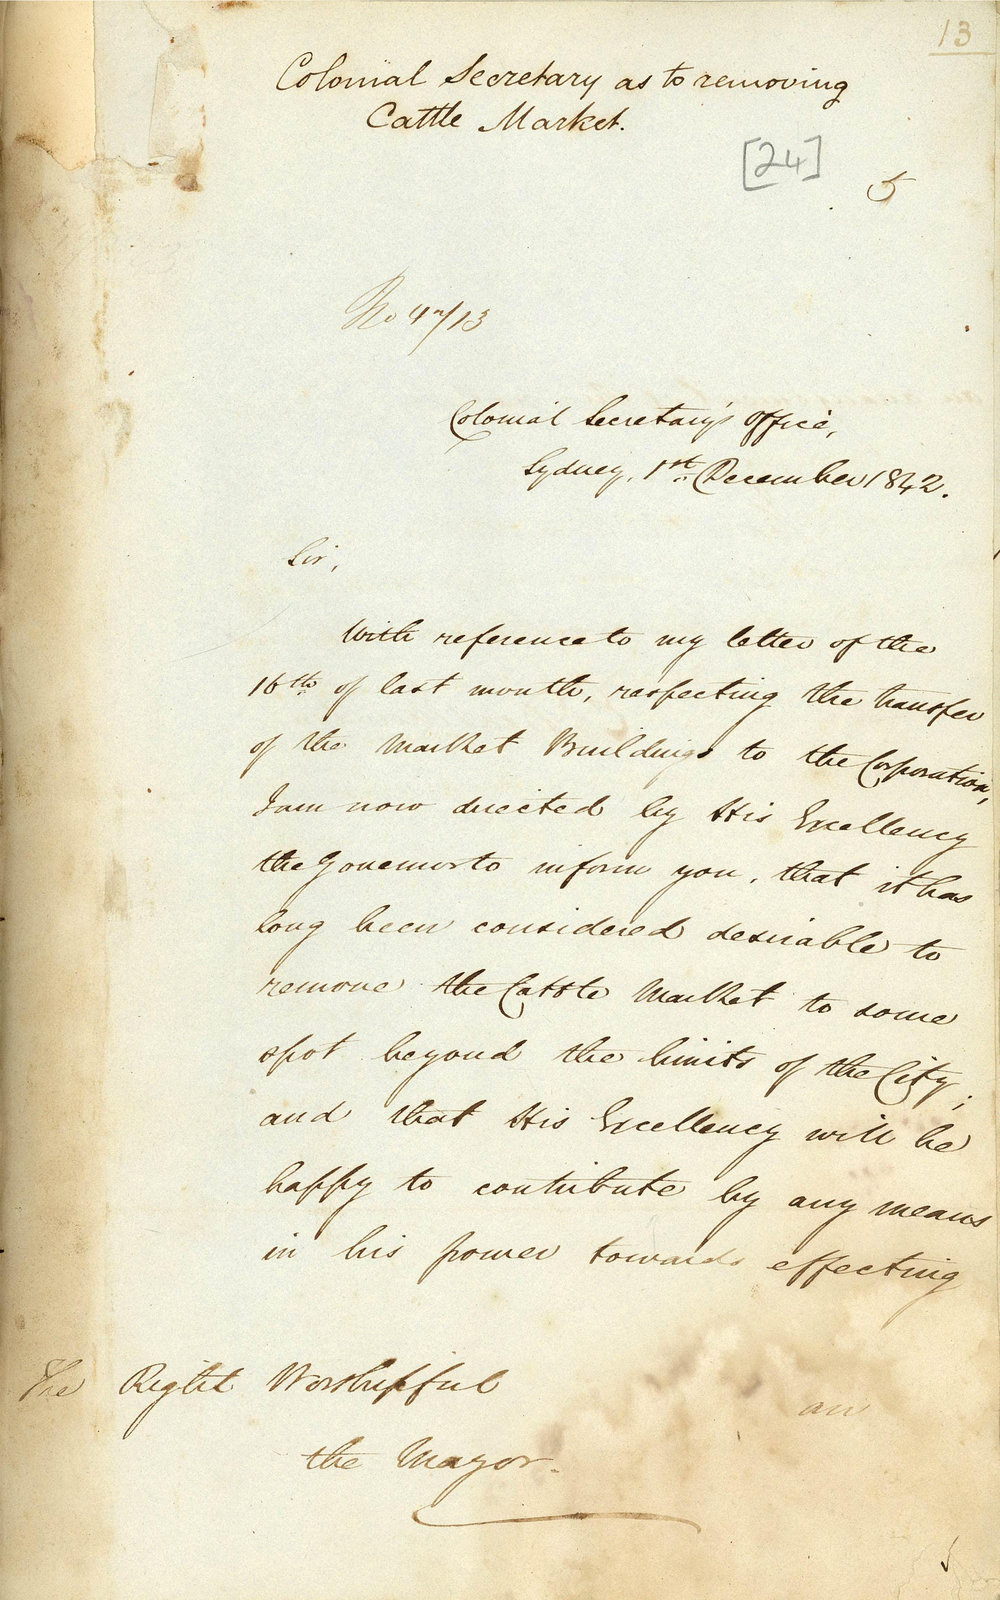 13
Colonial Secretary as to removing
Cattle Market.
[24]
5
No 42/13
Colonial Secretary's Office,
Sydney, 1st December 1842.
Sir,
With reference to my letter of the
16th of last month, respecting the transfer
of the Market Buildings to the Corporation,
I am now directed by His Excellency
the Governor to inform you, that it has
long been considered desirable to
remove the Cattle Market to some
spot beyond the limits of the City;
and that His Excellency will be
happy to contribute by any means
in his power towards effecting
an
The Right Worshipful
the Mayor.